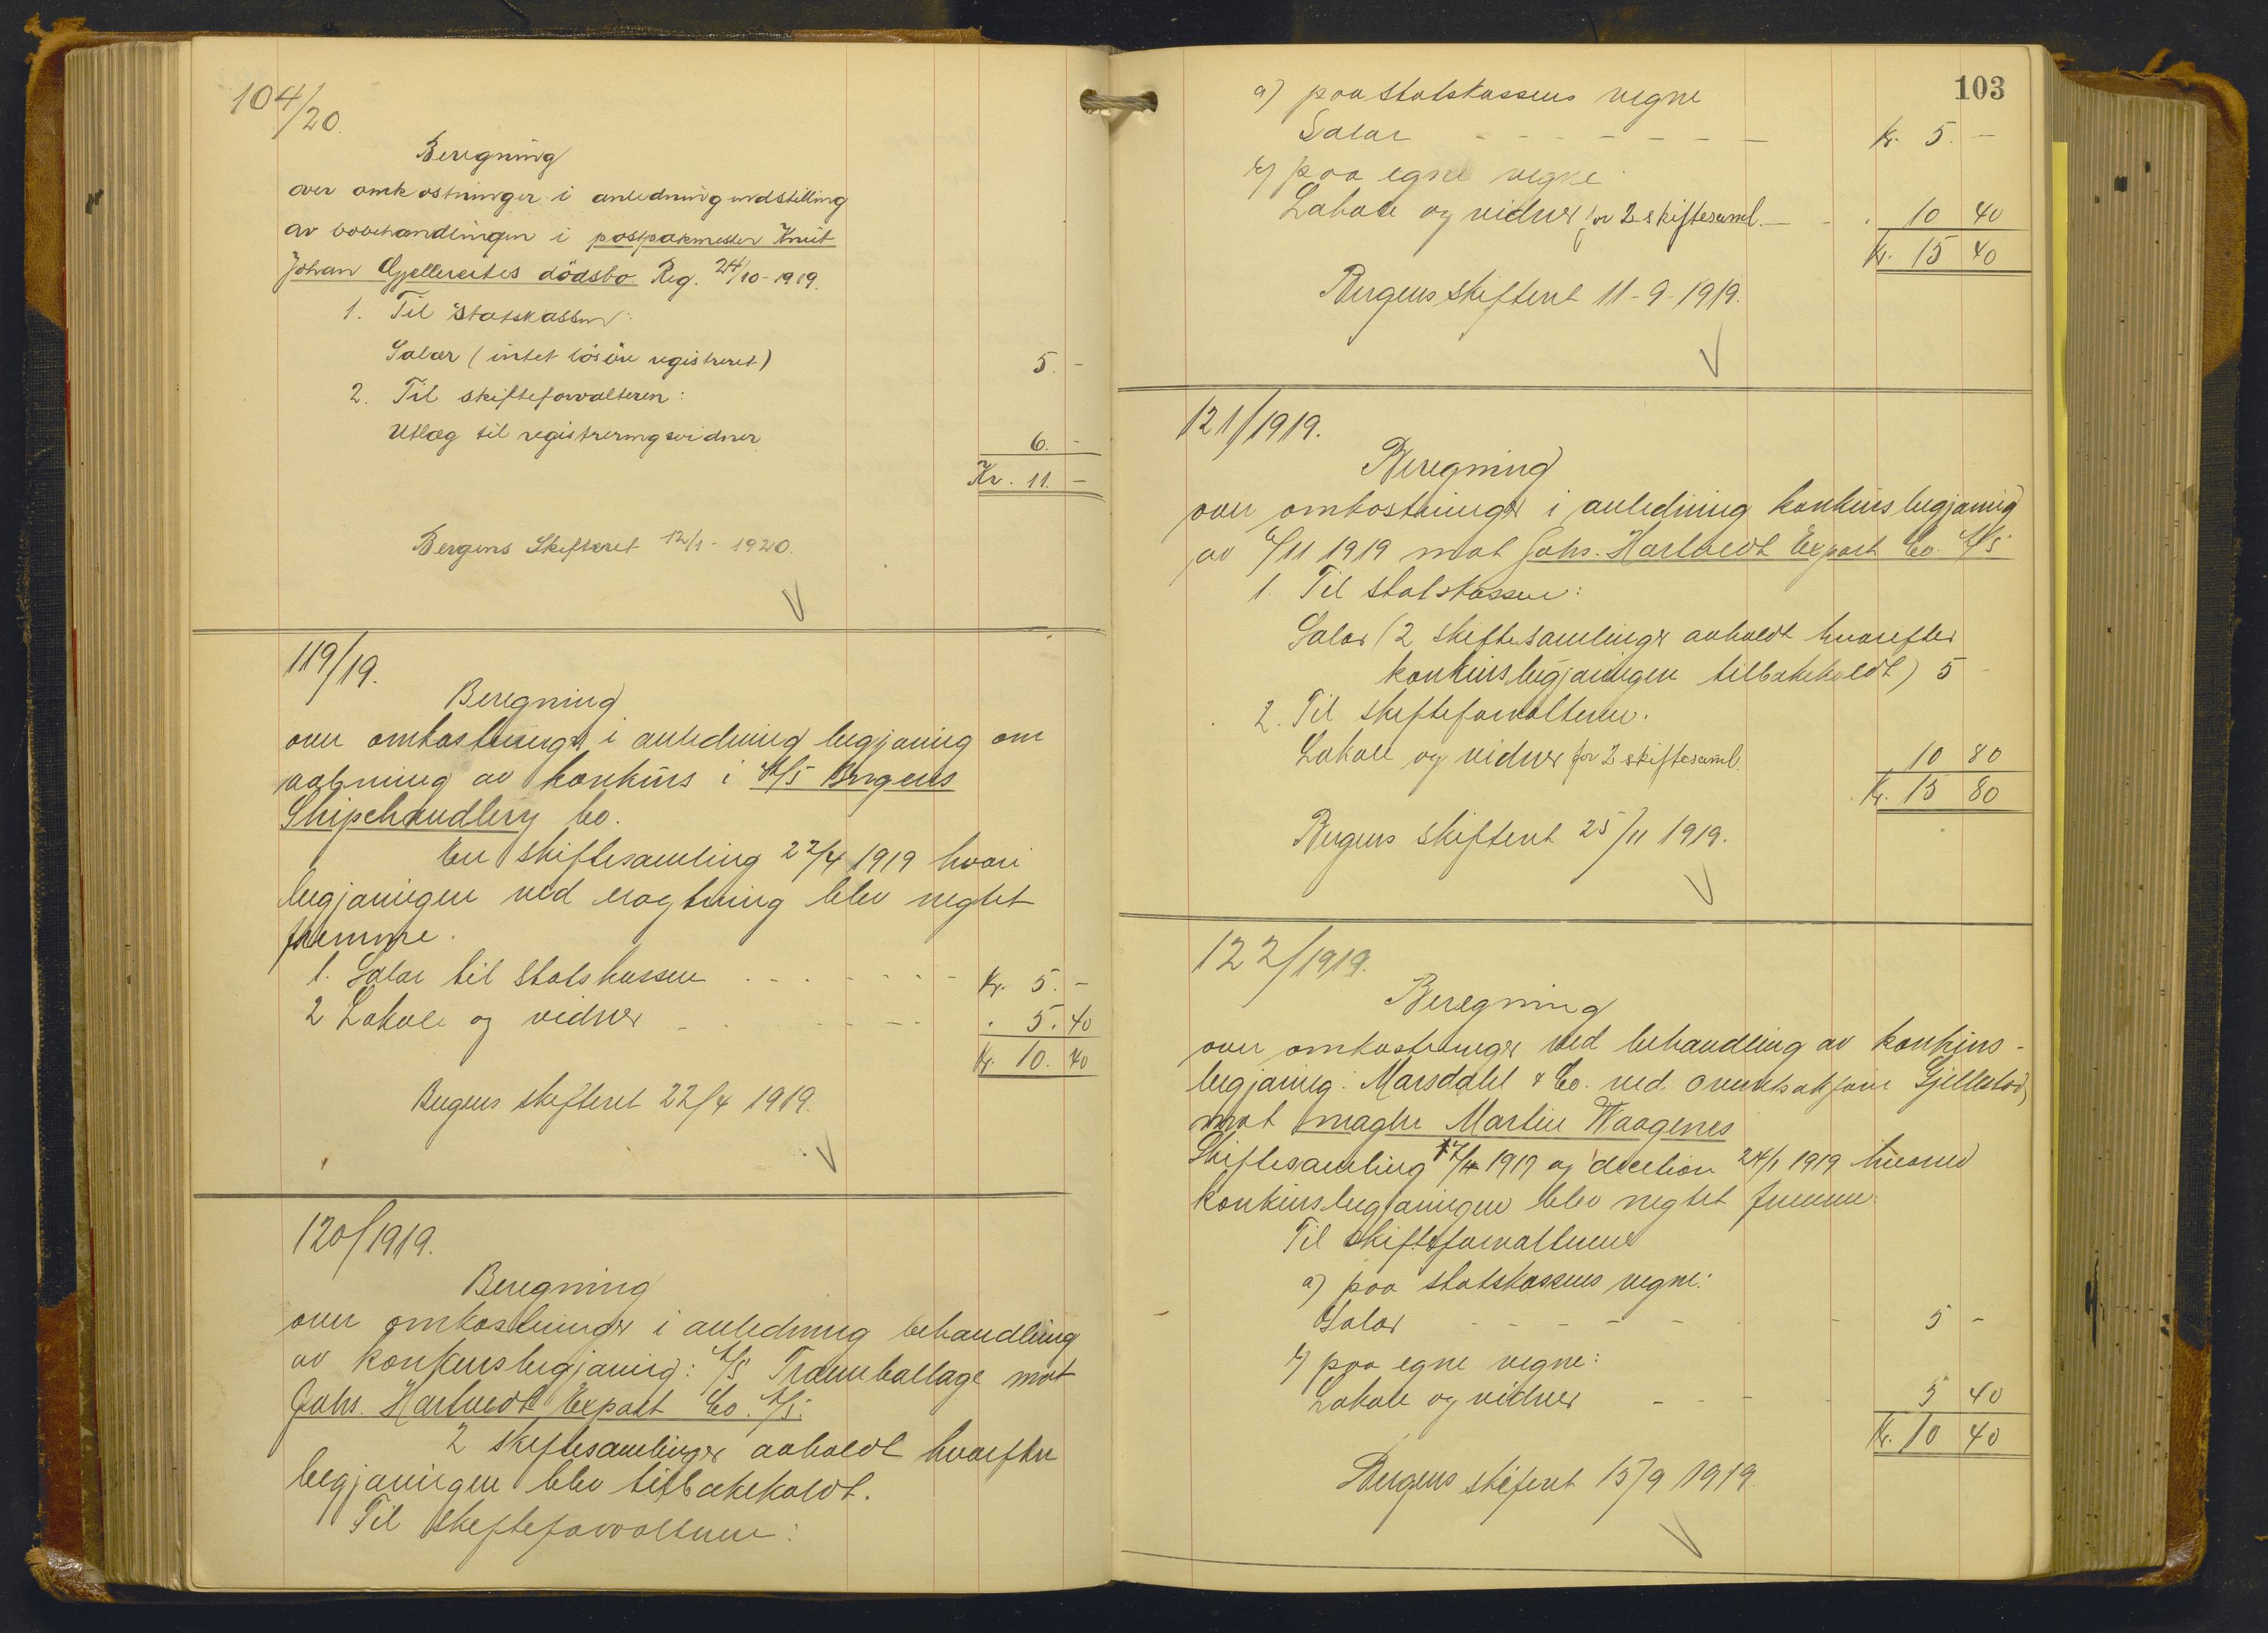 104/20.
Beregning
over omkostninger i anledning indstilling
av bobehandlingen i postpakmester Knut
Johan Gjellerertes dödsbo. Reg. 24/10-1919.
1. Til statskassen:
Salær (intet lösöre registreret) 5. -
2. Til skifteforvalteren:
Utlæg til registreringsvidner 6. -
Kr. 11. -
Bergens Skifteret 12/1 - 1920.
119/19.
Beregning
over omkostninger i anledning begjæring om
aabning av konkurs i A/S Bergens
Shipchandlery Co.
En skiftesamling 22/4 1919 hvori
begjæringen ved eragtning blev negtet
fremme.
1. Salær til statskassen Kr. 5. -
2 Lokale og vidner 5.40
Kr. 10.40
Bergens skifteret 22/4 1919.
120/1919.
Beregning
over omkostninger i anledning behandling
av konkursbegjæring: A/S Tranemballage mot
Johs. Hartvedt Export Co. A/S.
2 skiftesamlinger avholdt hvorefter
begjæringen blev tilbakekaldt.
Til skifteforvalteren:
103
a) paa statskassens vegne
Salær - - - - - - - Kr. 5. -
b) paa egne vegne
Lokale og vidner for 2 skiftesaml. - 10 40
Kr. 15 40
Bergens skifteret 11-9-1919.
121/1919.
Beregning
over omkostninger i anledning konkursbegjæring
av /11 1919 mot Johs. Hartvedt Export Co. A/S
1. Til statskassen:
Salær (2 skiftesamlinger avholdt hvorefter
konkursbegjæringen tilbakekaldt) 5 -
2. Til skifteforvalteren.
Lokale og vidner for 2 skiftesaml. 10 80
Kr. 15 80
Bergens skifteret 25/11 1919.
122/1919.
Beregning
over omkostninger ved behandling av konkurs-
begjæring: Marsdahl & Co. ved overretssakfører
mot mægler Martin Waagenes
Skiftesamling 1919 og decition 24/1 1919 hvorved
konkursbegjæringen blev negtet fremme.
Til skifteforvalteren
a) paa statskassens vegne:
Salær - - - - - - 5 -
b) paa egne vegne:
Lokale og vidner - - - 5 40
Kr. 10 40
Bergens skifteret 15/9 1919.